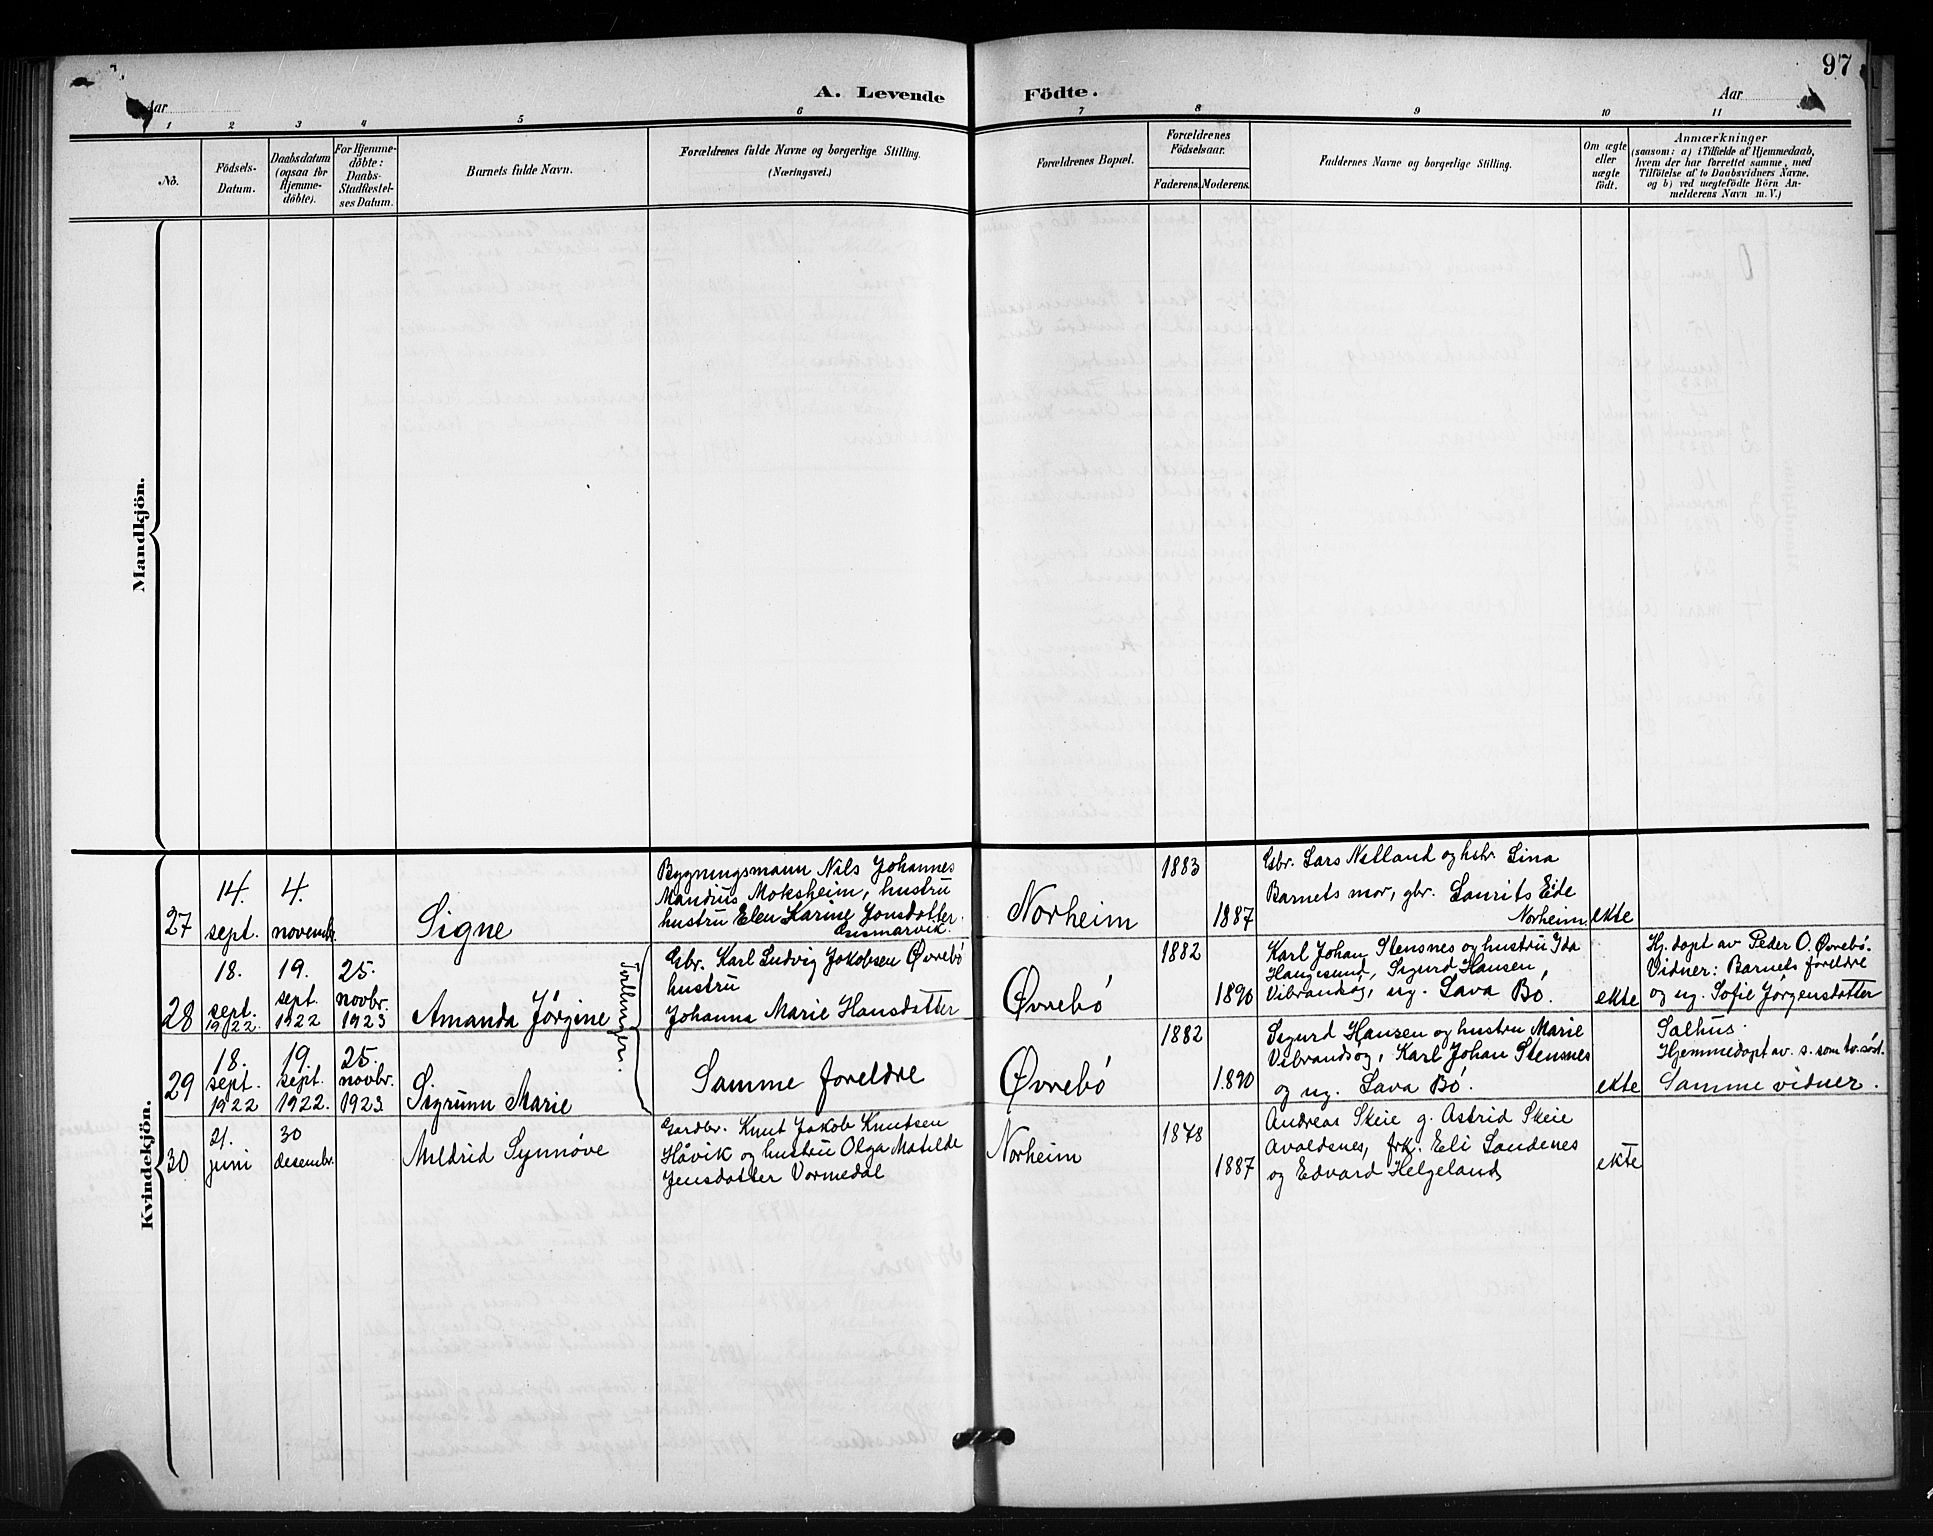 97
A. Levende Födte.
Aar
Aar
1 2 3 4 5 6 7 8 9 10 11
No.
Födsels-
Datum.
Daabsdatum
(ogsaa for
Hjemme-
döbte).
For Hjemme-
döbte:
Daabs-
Stadfæstel-
ses Datum.
Barnets fulde Navn.
Forældrenes fulde Navne og borgerlige Stilling.
(Næringsvei.)
Forældrenes Bopæl.
Forældrenes
Födselsaar.
Faderens. Moderens.
Faddernes Navne og borgerlige Stilling.
Om ægte
eller
uægte
födt.
Anmærkninger
(saasom: a) i Tilfælde af Hjemmedaab,
hvem der har forrettet samme, med
Tilföielse af to Daabsvidners Navne,
og b) ved uægtefödte Börn An-
melderens Navn m. V.)
Mandkjön.
Kvindekjön.
27
14.
sept.
4.
novembr.
Signe
Bygningsmann Nils Johannes
Mandius Moksheim, hustru
hustru Elen Karine Jonsdotter
Gismarvik.
Norheim
1883
1887
Gbr. Lars Nelland og hstr. Lina
Barnets mor, gbr. Laurits Eide
Norheim
ekte
28
18.
sept.
1922
19.
sept.
1922
25.
novbr.
1923
Amanda Jörgine
Tvillinger.
Gbr. Karl Ludvig Jakobsen Øvrebö
hustru
Johanna Marie Hansdotter
Øvrebö
1882
1890
Karl Johan Stensnes og hustru Ida
Haugesund, Sigurd Hansen,
Vibrandsög, ug. Lava Bö.
ekte
Hj. döpt av Peder O. Øvrebö.
Vidner: Barnets foreldre
og ug. Sofie Jörgensdotter
Salhus.
29
18.
sept.
1922
19.
sept.
1922.
25.
novbr.
1923
Sigrunn Marie
Samme foreldre
Øvrebö
1882
1890
Sigurd Hansen og hustru Marie
Vibrandsög, Karl Johan Stensnes
og ug. Lava Bö.
ekte
Hjemmedöpt av. s. som tv.söst.
Samme vidner.
30
21.
juni
30
desembr.
Mildrid Synnöve
Gardbr. Knut Jakob Knutsen
Håvik og hustru Olga Matilde
Jensdotter Vormedal
Norheim
1878
1887
Andreas Skeie g. Astrid Skeie
Avaldsnes, frk. Eli Sandenes
og Edvard Helgeland
ekte